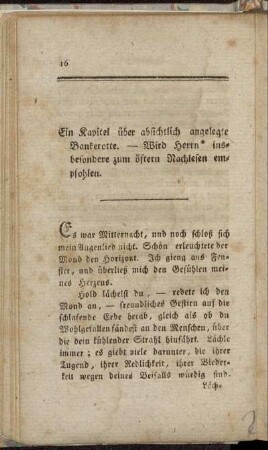 16
Ein Kapitel über absichtlich angelegte
Bankerotte. — Wird Herrn * ins-
besondere zum öftern Nachlesen em-
pfohlen.
Es war Mitternacht, und noch schloß sich
mein Augenlied nicht. Schön erleuchtete der
Mond den Horizont. Ich gieng ans Fen-
ster, und überließ mich den Gefühlen mei-
nes Herzens.
Hold lächelst du, — redete ich den
Mond an, — freundliches Gestirn auf die
schlafende Erde herab, gleich als ob du
Wohlgefallen fändest an den Menschen, über
die dein kühlender Strahl hinfährt. Lächle
immer; es giebt viele darunter, die ihrer
Tugend, ihrer Redlichkeit, ihrer Bieder-
keit wegen deines Beifalls würdig sind.
Läch-